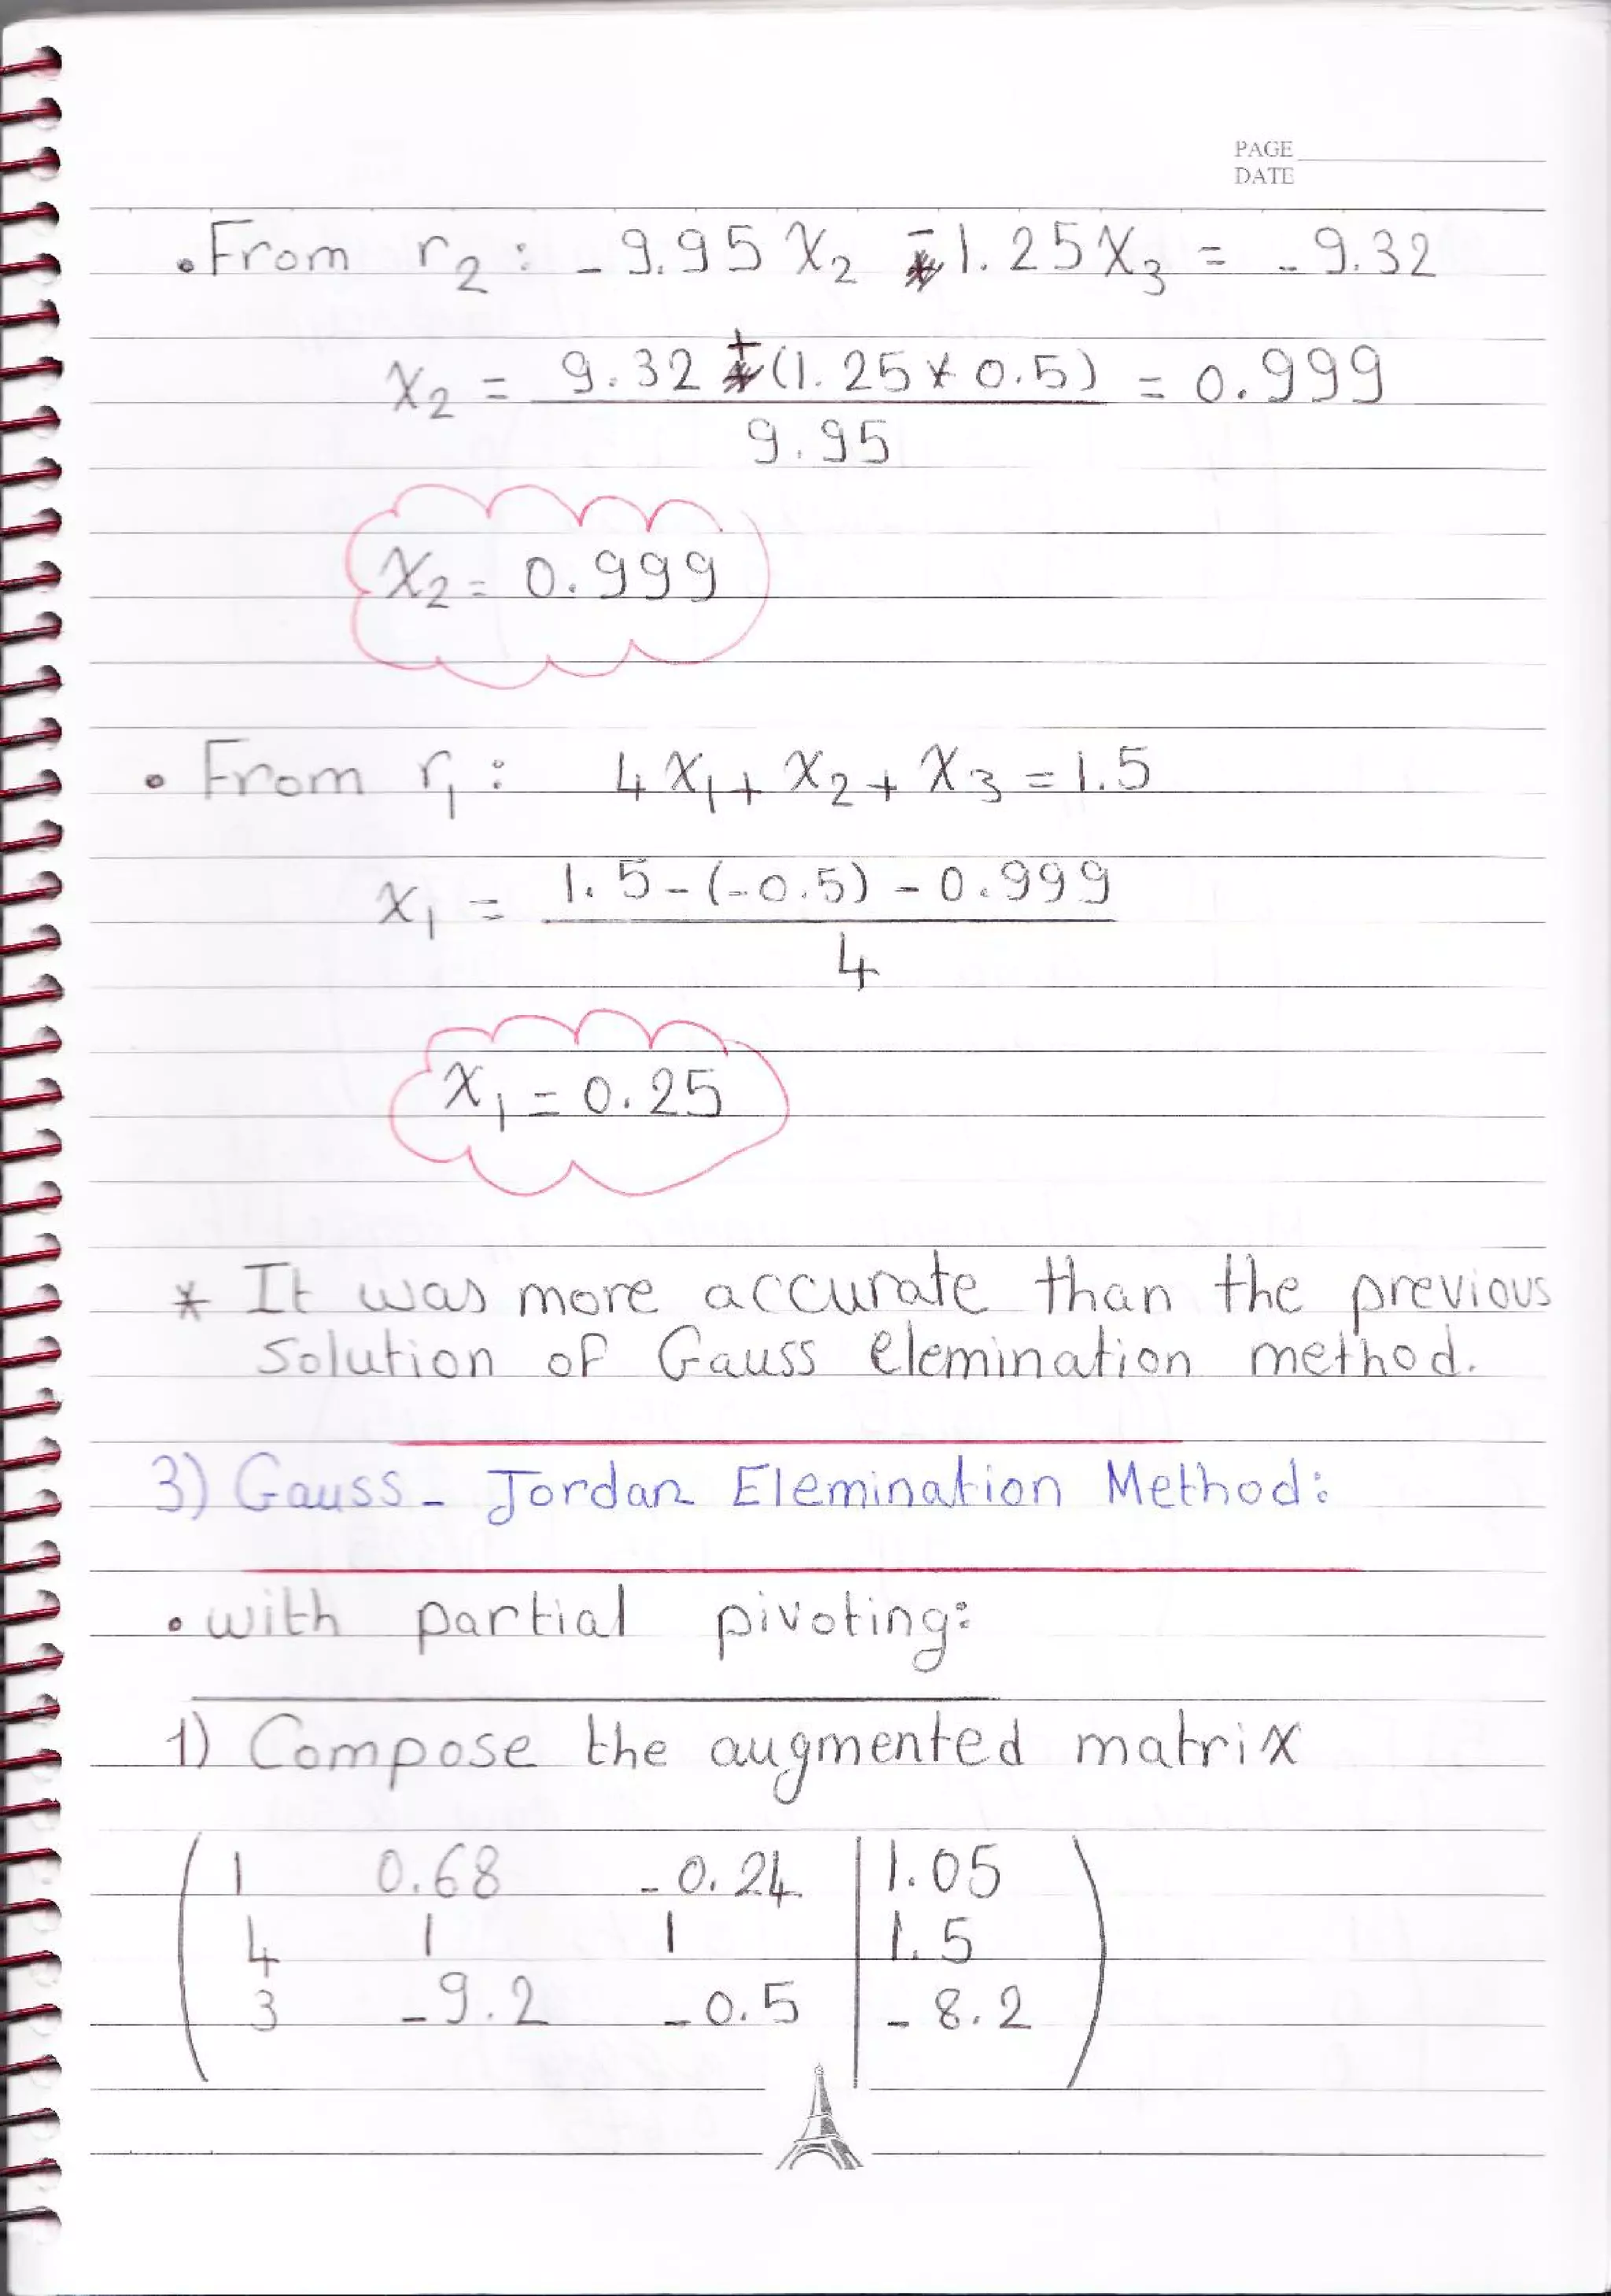 PAGE
DATE
• From r₂ : - 9.95 X₂ - 1.25 X₃ = - 9.32
X₂ = 9.32 + (1.25 * 0.5) / 9.95 = 0.999
X₂ = 0.999
• From r₁ : 4 X₁ + X₂ + X₃ = 1.5
X₁ = 1.5 - (-0.5) - 0.999 / 4
X₁ = 0.25
* It was more accurate than the previous
solution of Gauss elemination method.
3) Gauss - Jordan Elemination Method:
• with partial pivoting:
1) Compose the augmented matrix
1 0.68 - 0.24 | 1.05
4 1 1 | 1.5
3 - 9.2 - 0.5 | - 8.2